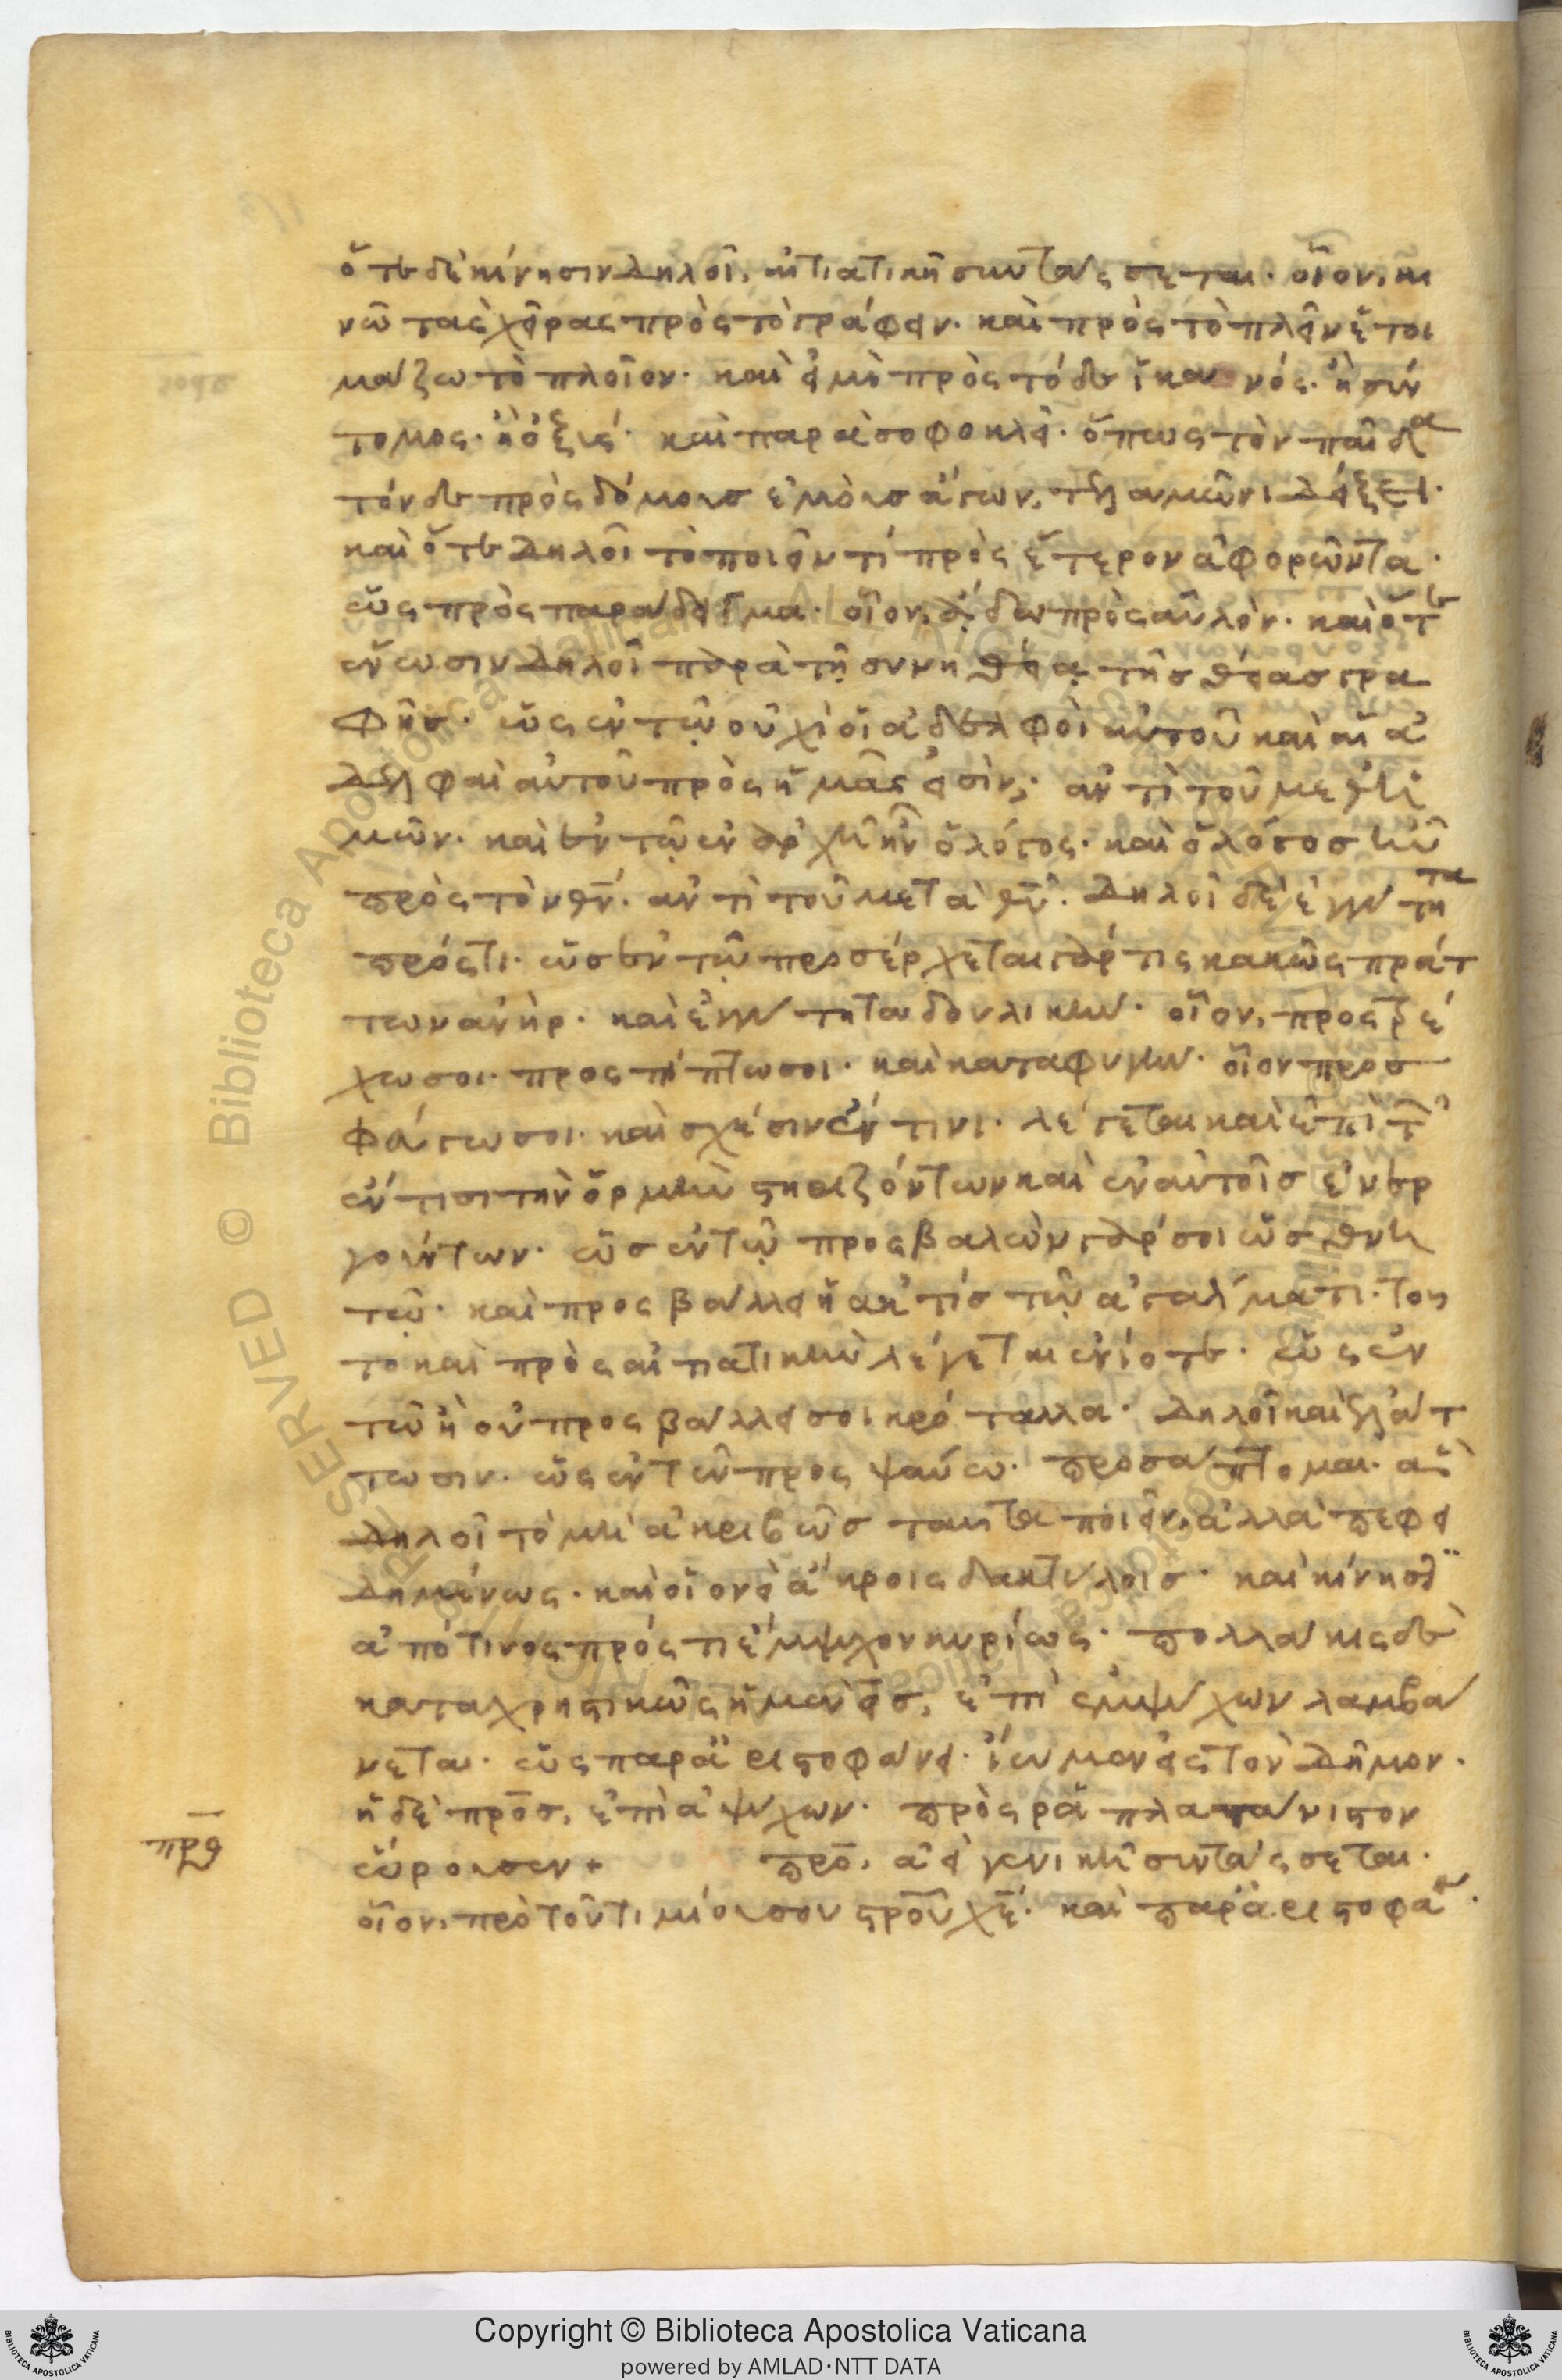 ὅτε δὲ κίνησιν δηλοῖ, αἰτιατικῆ συντάσσεται· οἷον, κι
νῶ τὰς χεῖρας πρὸς τὸ γράφειν· καὶ πρὸς τὸ πλεῖν ἕτοι
μάζω τὸ πλοῖον· καὶ εἰμὶ πρὸς τόδε ἱκανός· ἢ σύν
τομος· ἢ ὀξύς· καὶ παρὰ σοφοκλεῖ· ὅπως τὸν παῖδα
τόνδε πρὸς δόμους ἐμοὺς ἄγων, τελαμῶνι δείξει·
καὶ ὅτε δηλοῖ τὸ ποιεῖν τί πρὸς ἕτερον ἀφορῶντα·
ὡς πρὸς παράδειγμα· οἷον, ἄδω πρὸς αὐλόν· καὶ ὅτε
ἕνωσιν δηλοῖ παρὰ τῇ συνηθείᾳ τῆς θείας γρα
φῆς· ὡς ἐν τῷ οὐχὶ οἱ ἀδελφοὶ αὐτοῦ καὶ αἱ ἀ
δελφαὶ αὐτοῦ πρὸς ἡμᾶς εἰσίν; ἀντὶ τοῦ μεθ' ἡ
μῶν· καὶ ἐν τῷ ἐν ἀρχῆ ἦν ὁ λόγος· καὶ ὁ λόγος ἦν
πρὸς τὸν θν· ἀντὶ τοῦ μετὰ θυ· δηλοῖ δὲ ἐγγύτητα
πρός τι· ὡς ἐν τῷ προσέρχεται γάρ τις κακῶς πράτ
των ἀνήρ· καὶ ἐγγύτητα δουλικήν· οἷον, προστρέ
χω σοι· προσπίπτω σοι· καὶ καταφυγήν· οἷον προσ
φεύγω σοι· καὶ σχέσιν ἔν τινι· λέγεται καὶ ἐπὶ τῶν
ἔν τισι τὴν ὁρμὴν στηριζόντων καὶ ἐν αὐτοῖς ἐνερ
γούντων· ὡς ἐν τῷ προσβαλὼν γάρ σοι ὡς θνη
τῷ· καὶ προσβάλλει ἡ ἀκτίς τῷ ἀγάλματι· τοῦ
το καὶ πρὸς αἰτιατικὴν λέγεται ἐνίοτε· ὡς ἐν
τῷ ἢ οὐ προσβάλλει σοι κρόταλλα· δηλοῖ καὶ ἐλάτ
τωσιν· ὡς ἐν τῷ προσψαύω· προσάπτομαι· ἃ
δηλοῖ τὸ μὴ ἀκριβῶς ταῦτα ποιεῖν, ἀλλὰ πεφει
δημένως· καὶ οἱονεὶ ἄκροις δακτύλοις· καὶ κίνησιν
ἀπό τινος πρός τι ἔμψυχον κυρίως· πολλάκις δὲ
καταχρηστικῶς ἡ μὲν εἰς, ἐπὶ ἐμψύχων λαμβά
νεται· ὡς παρ' ἀριστοφάνει· ἴωμεν εἰς τὸν δῆμον·
ἡ δὲ πρὸς, ἐπὶ ἀψύχων· πρὸς ρα πλατάνιστον
ὥρουσεν + πρό, ἀεὶ γενικῆ συντάσσεται·
οἷον, πρὸ τοῦ τιμίου σου στροῦ χε· καὶ παρὰ ἀριστοφα